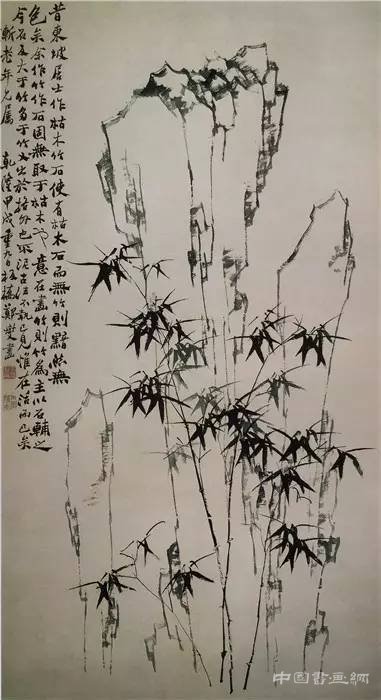 昔東坡居士作枯木竹石使有枯木石而無竹則黯然無
色矣余作竹作石固無取于枯木也意在畫竹則竹為主以石輔之
今石反大于竹多于竹又出於格外也不泥古法不執己見惟在活而已矣
老年兄屬 乾隆甲戌重九日板橋鄭燮畫
中國書画網